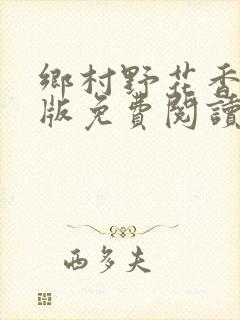 鄉村野花香
版免費閱讀
西多夫